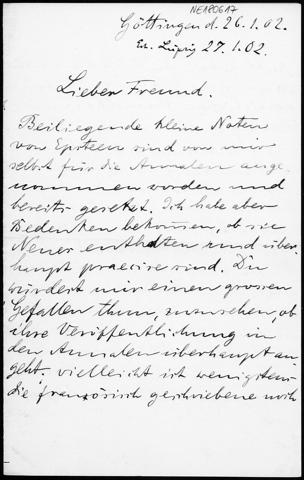 NE180617
Göttingen d. 26.1.02.
Leipzig 27.1.02.
Lieber Freund.
Beiliegende kleine Noten
von Epsteen sind von mir
selbst für die Annalen ange-
nommen worden und
bereits gesetzt. Ich habe aber
Bedenken bekommen, ob sie
Neues enthalten und über-
haupt praecise sind. Du
würdest mir einen grossen
Gefallen thun, nachzusehen, ob
ihre Veröffentlichung in
den Annalen überhaupt an-
geht. Vielleicht ist wenigstens
die französisch geschriebene noch